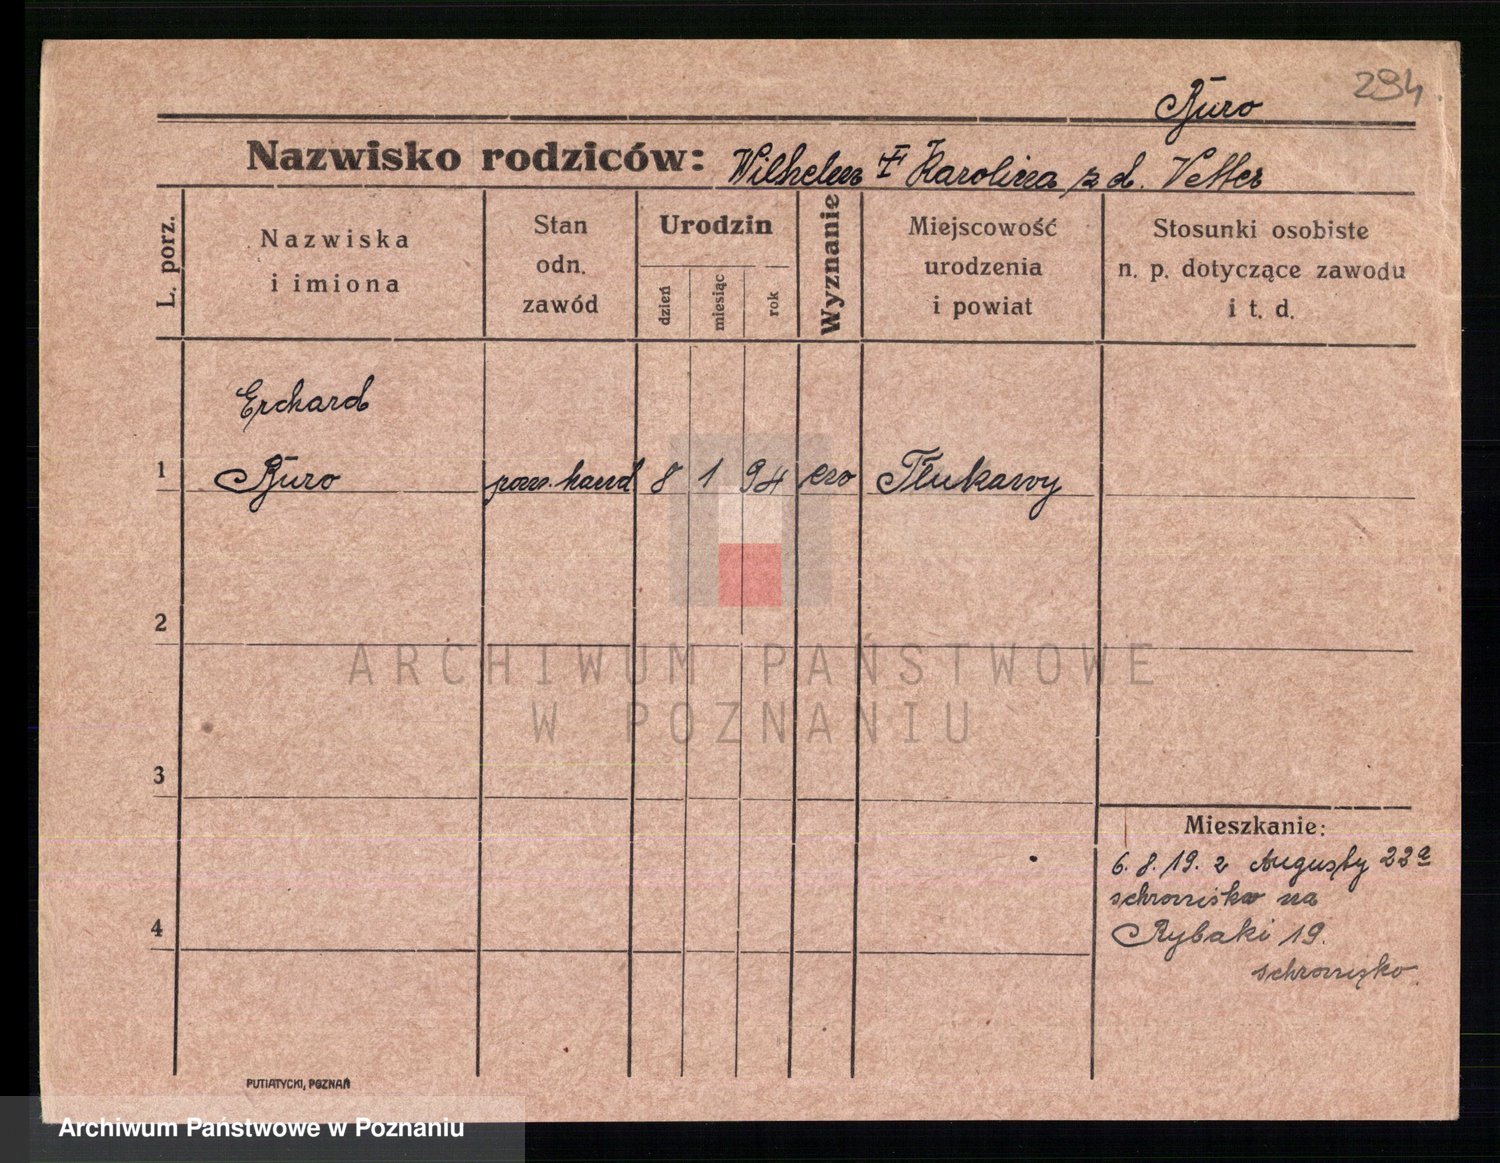 294
Büro
Nazwisko rodziców: Wilhelm Karolina z d. Vetter
L. porz.
Nazwiska
i imiona
Stan
odn.
zawód
Urodzin
dzień
miesiąc
rok
Wyznanie
Miejscowość
urodzenia
i powiat
Stosunki osobiste
n. p. dotyczące zawodu
i t. d.
Erchard
1 Büro pom. hand 8 1 94 ew Tłukawy
2
3
4
ARCHIWUM PAŃSTWOWE
W POZNANIU
Mieszkanie:
6. 8. 19. z Augusty 22a
schronisko na
Rybaki 19.
schronisko
PUTIATYCKI, POZNAŃ
Archiwum Państwowe w Poznaniu